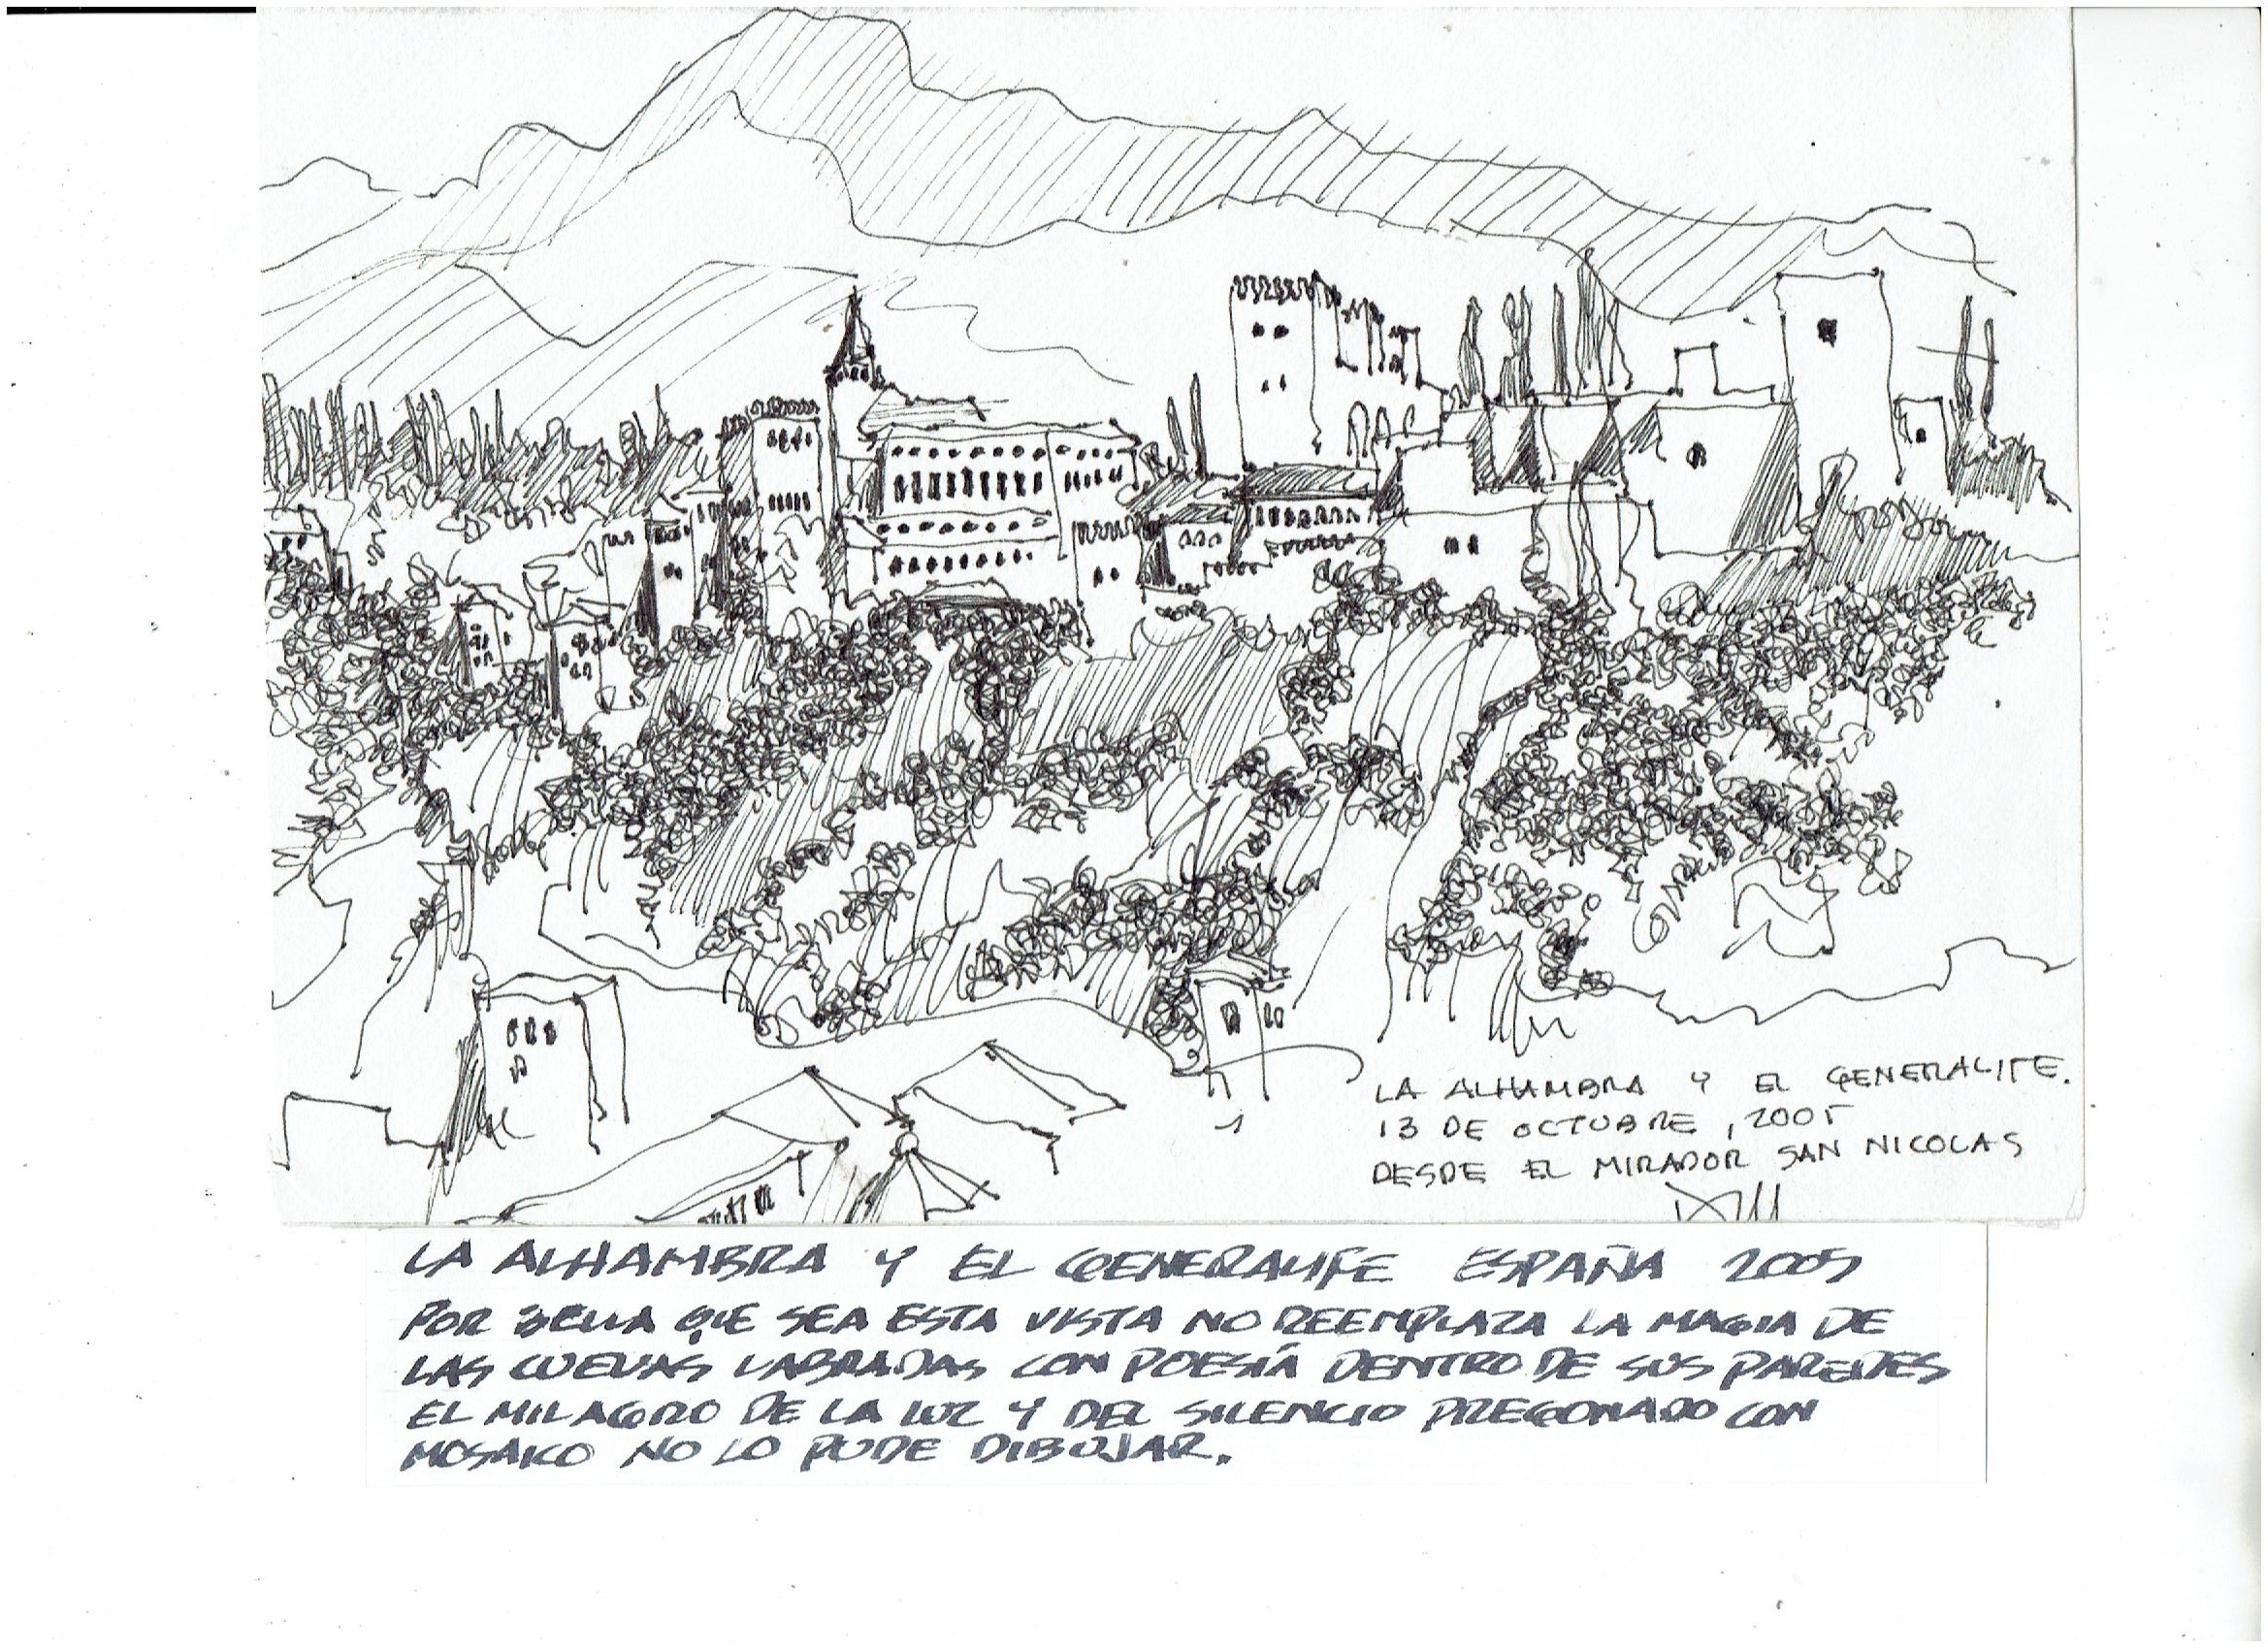 LA ALHAMBRA Y EL GENERALIFE.
13 DE OCTUBRE, 2005
DESDE EL MIRADOR SAN NICOLAS
LA ALHAMBRA Y EL GENERALIFE ESPAÑA 2005
POR BELLA QUE SEA ESTA VISTA NO REEMPLAZA LA MAGIA DE
LAS CUEVAS LABRADAS CON POESÍA DENTRO DE SUS PAREDES
EL MILAGRO DE LA LUZ Y DEL SILENCIO PREGONADO CON
MOSAICO NO LO PUDE DIBUJAR.